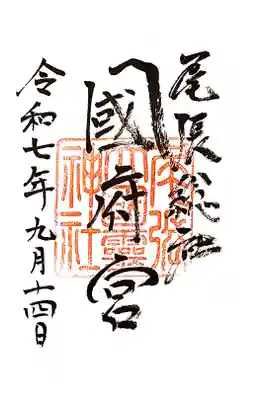 尾張総社
國府宮
令和七年九月十四日
尾張
大國靈
神社